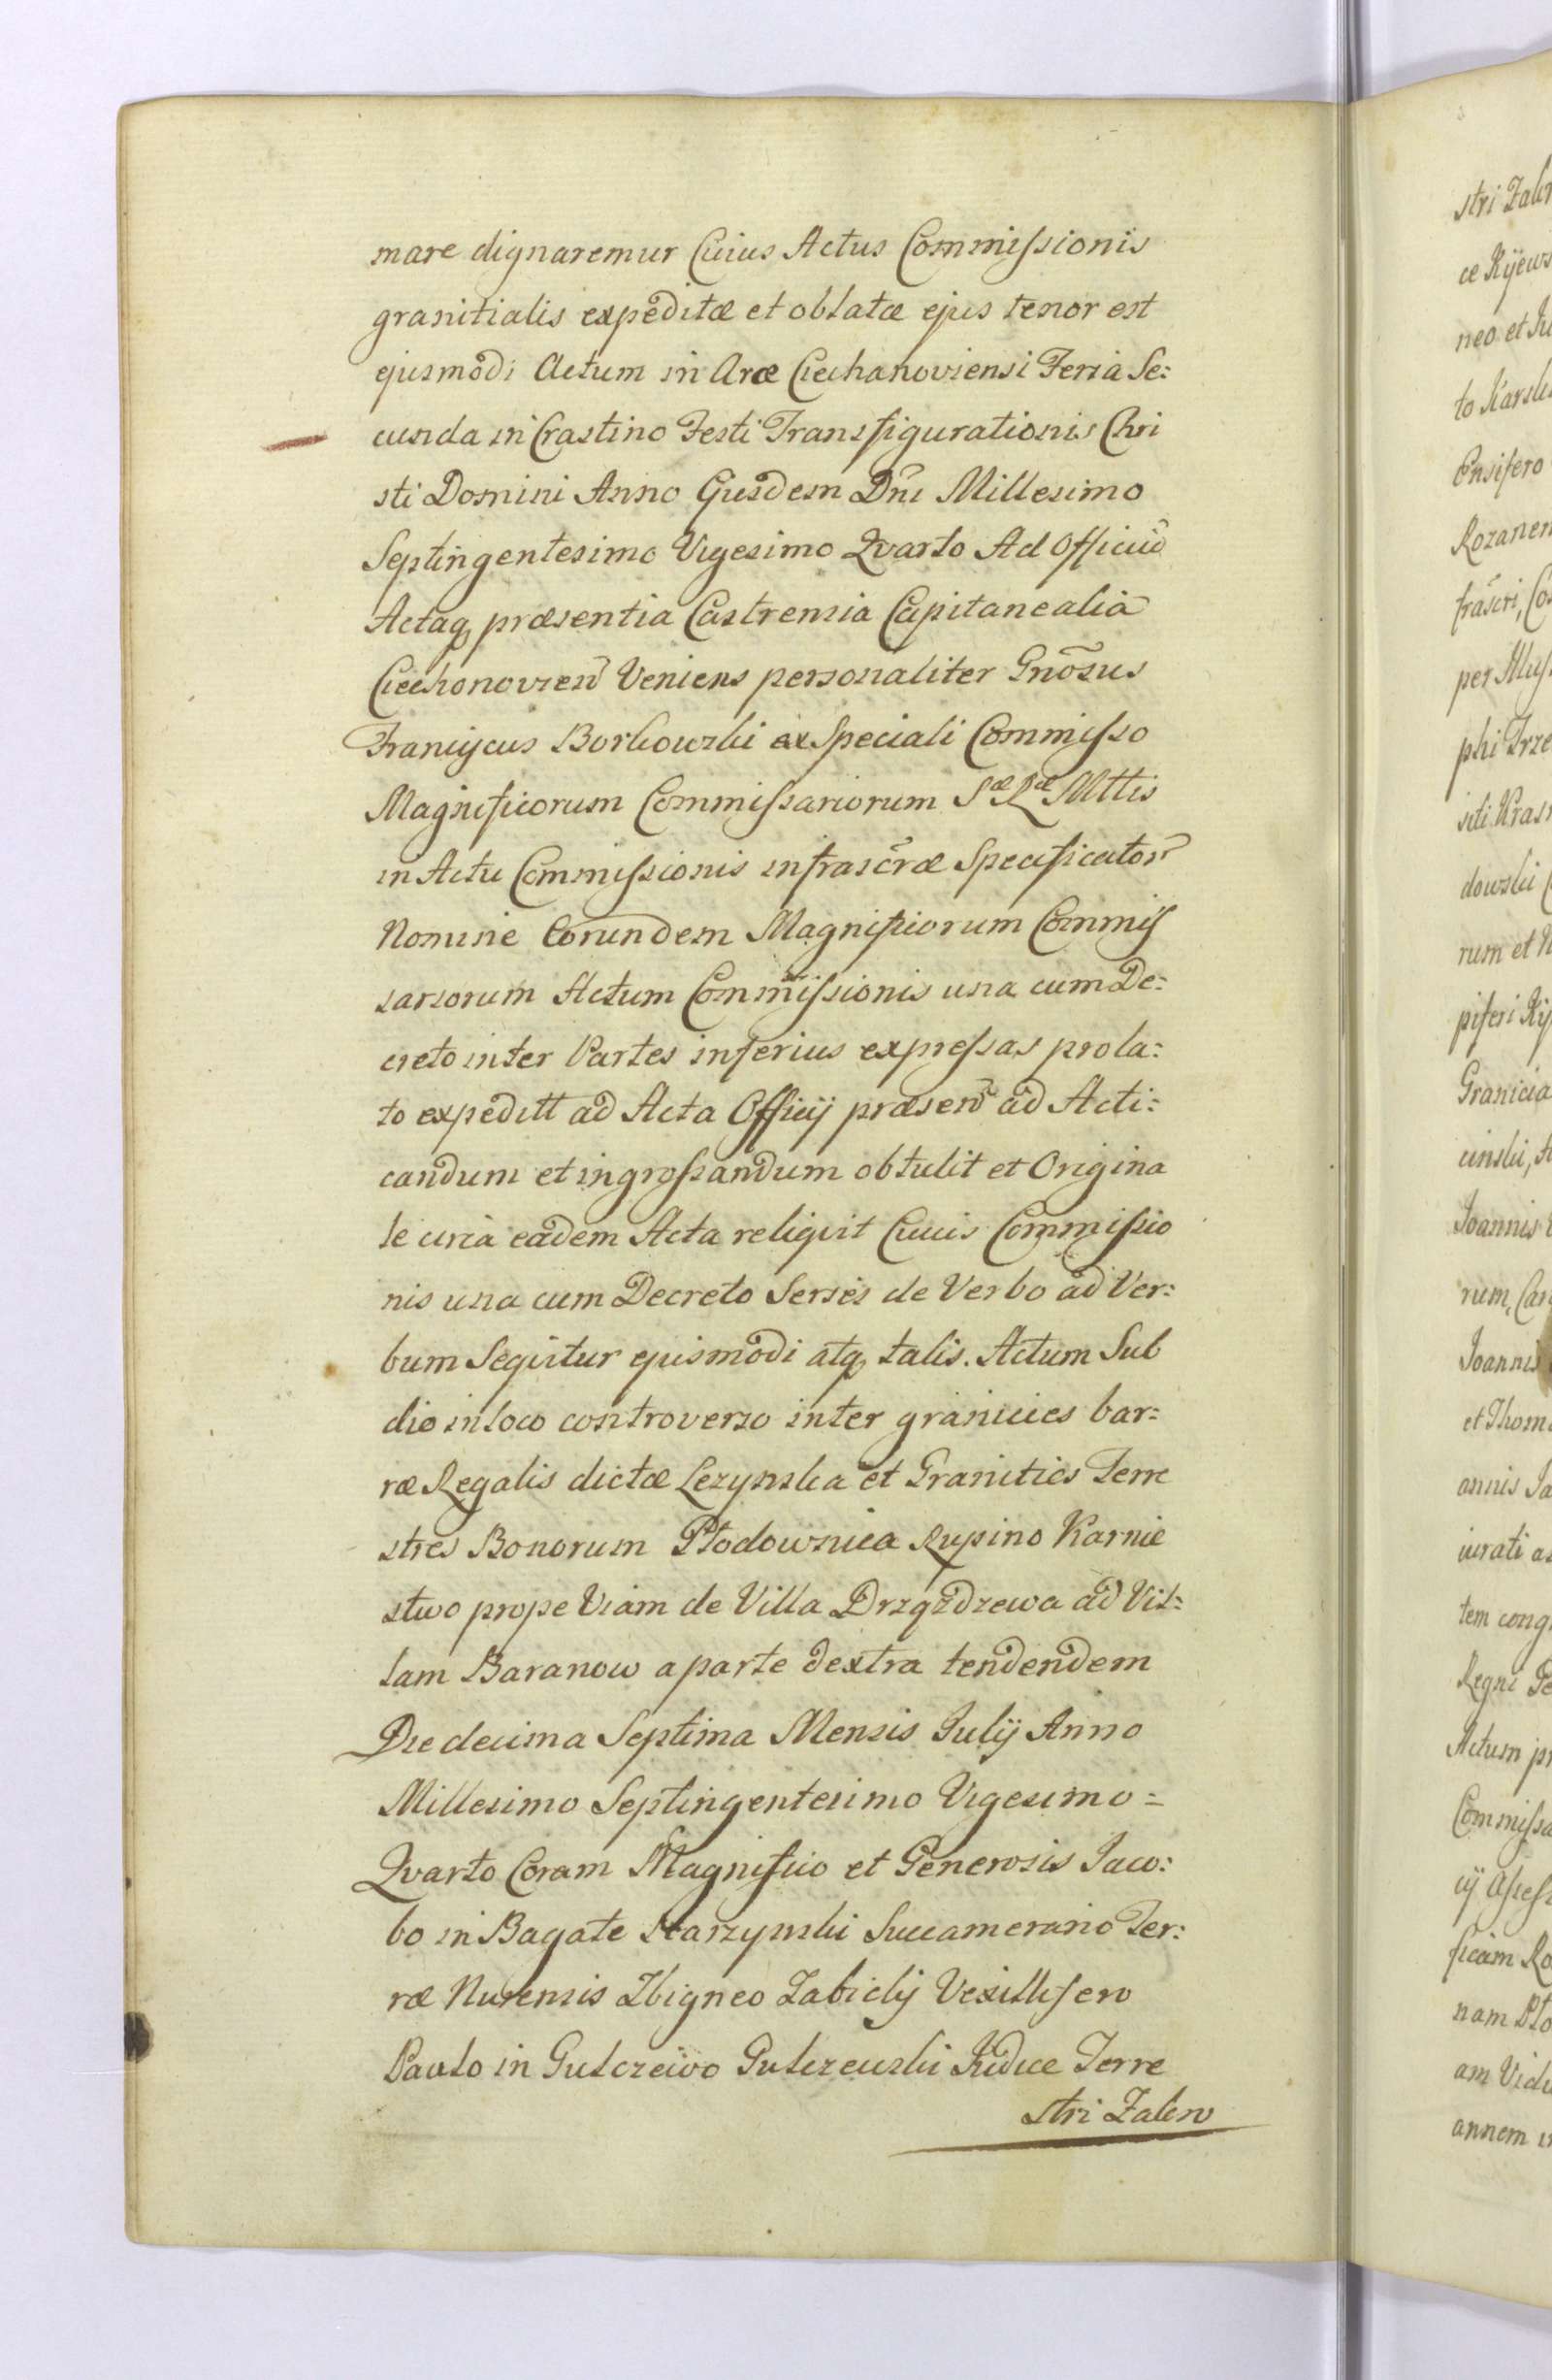 mare dignaremur Cuius Actus Commissionis
granitialis expeditæ et oblatæ ejus tenor est
ejusmodi Actum in Arce Ciechanoviensi Feria Se:
cunda in Crastino Festi Transfigurationis Chri
sti Domini Anno Ejusdem Dñi Millesimo
Septingentesimo Vigesimo Qvarto Ad Officiũ
Actaq, præsentia Castrensia Capitanealia
Ciechonovieñ Veniens personaliter Gnõsus
Franciscus Borkowski ex Speciali Commisso
Magnificorum Commissariorum Sæ Ræ Mttis
in Actu Commissionis infrascr̃æ Specificator̃
Nomine Eorundem Magnificorum Commis
sariorum Actum Commissionis una cum De:
creto inter Partes inferius expressas prola:
to expeditt ad Acta Officij præseñ ad Acti:
candum et ingrossandum obtulit et Origina
le circa eadem Acta reliqvit Cuius Commissio
nis una cum Decreto Series de Verbo ad Ver:
bum Seqvitur ejusmodi atq, talis. Actum Sub
dio in loco controverso inter granicies bar:
ræ Regalis dictæ Lezynska et Granities Terre
stres Bonorum Płodownica Rupino Karnie
stwo prope Viam de Villa Drzązdzewa ad Vil:
lam Baranow a parte dextra tendendem
Die decima Septima Mensis Julij Anno
Millesimo Septingentesimo Vigesimo =
Qvarto Coram Magnifico et Generosis Jaco:
bo in Bagate Starzynski Succamerario Ter:
ræ Nurensis Zbigneo Zabickij Vexillifero
Paulo in Gulczewo Gulczewski Judice Terre
stri Zakro
stri Zakr
ce Kijews
neo et Ju
to Karsk
Ensifero
Rozanen
frascri, Co
per Illus
phi Trze
siti Kras
dowski
rum et N
piferi Kij
Granicia
cinski,
Joannis
rum, Car
Joannis
et Thom
annis Ja
iurati a
tem cong
Regni
Actum pr
Commissa
ij Assess
ficam Ro
nam Pło
am Vidu
annem